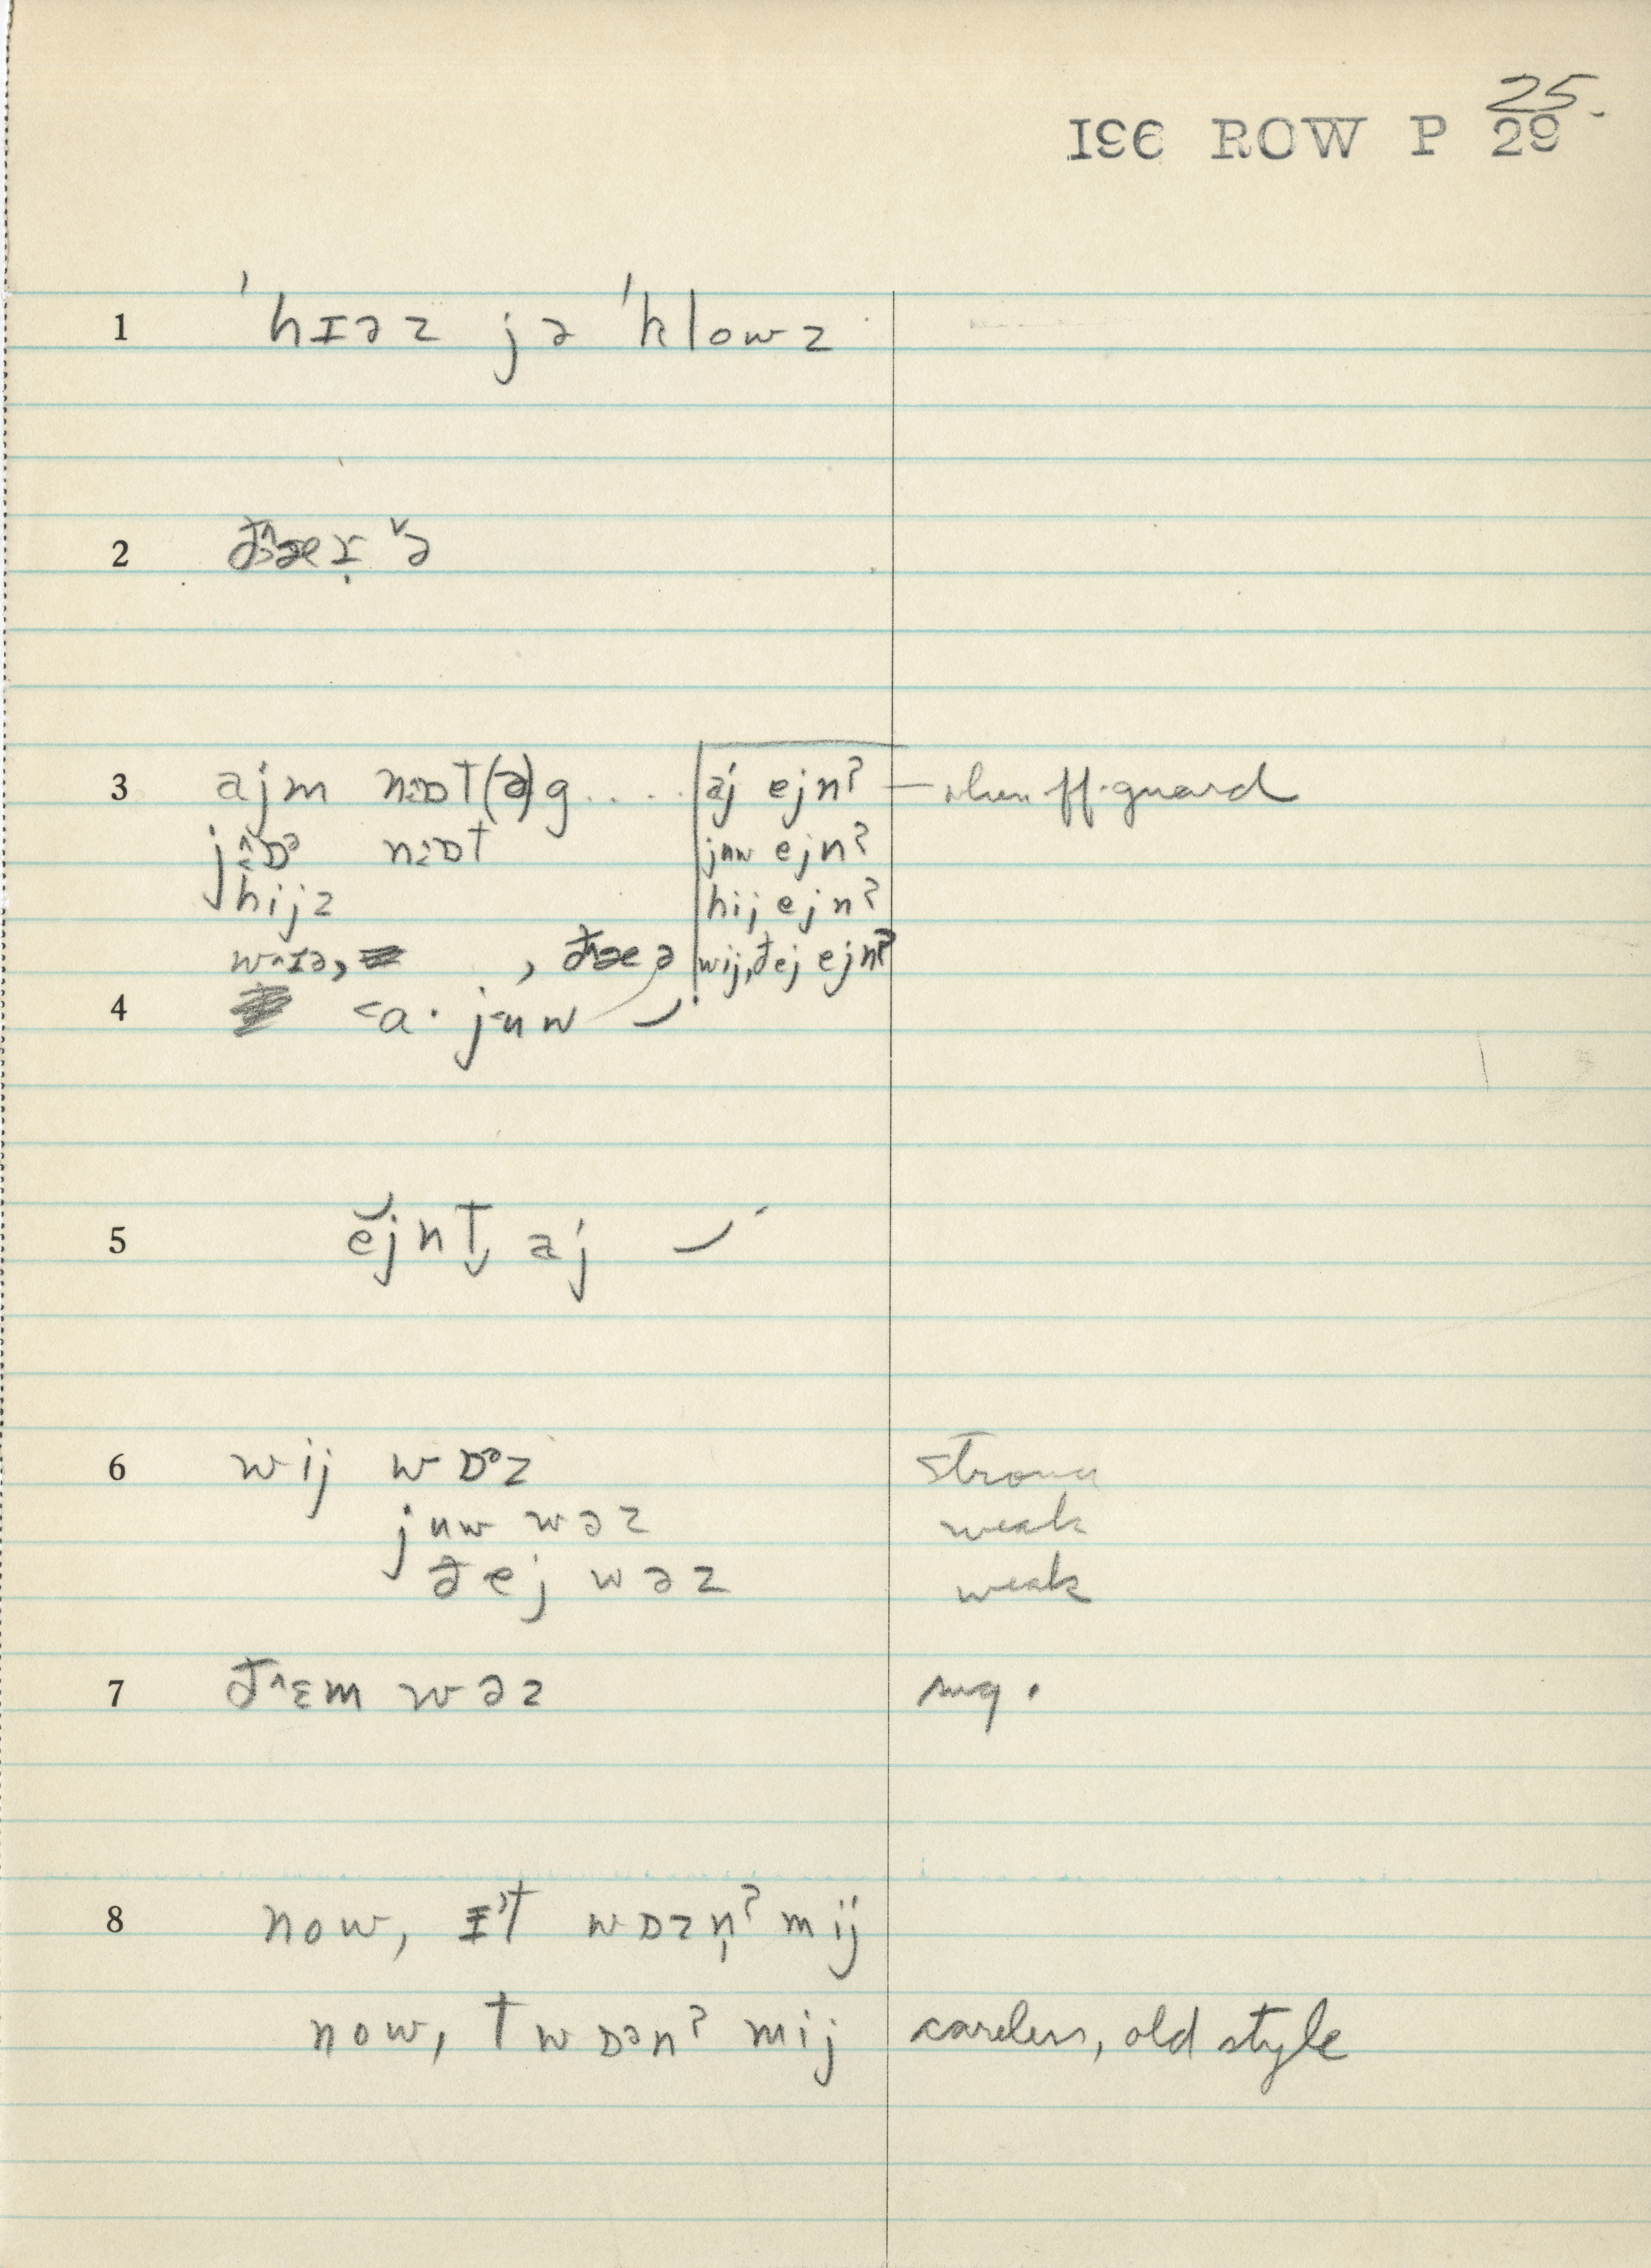 25
I9E ROW P 29
1 ˈhɪəz jə ˈklowz
2 ðæɪ̣ ˇə
3 ajm nɒt(ə)g.... aj ejnˀ — when off-guard
j^ɒᵊ nɒt juw ejnˀ
hijz hij ejnˀ
w^ɪə, , ðæə wij, ðej ejnˀ
4 <a· j<uw
5 ĕjnt̬ aj
6 wij wɒᵊz strong
juw wəz weak
ðej wəz weak
7 ð^ɛm wəz sug.
8 now, ɪt wɒzn̩ˀ mij
now, t wɒənˀ mij careless, old style